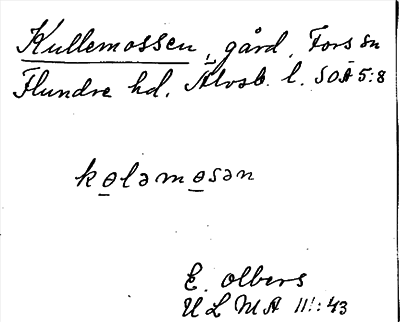 Kullemossen, gård, Fors sn
Flundre hd, Älvsb. l. SOÄ 5:8
kɵləmɵsən
E. Olbers
ULMA 111:43